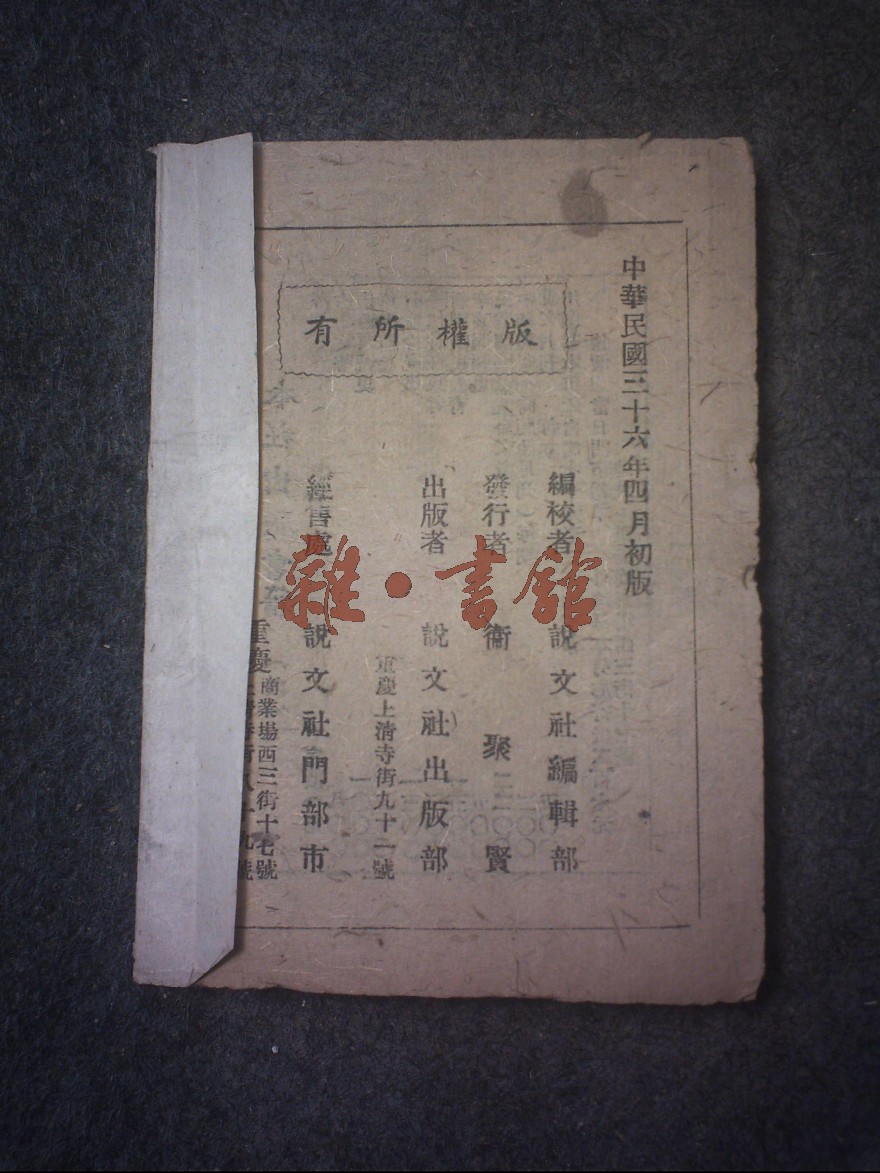 中華民國三十六年四月初版
版權所有
編校者 說文社編輯部
發行者 衞聚賢
出版者 說文社出版部
重慶上清寺街九十二號
經售處 說文社門部市
重慶
商業場西三街十七號
雜·書館